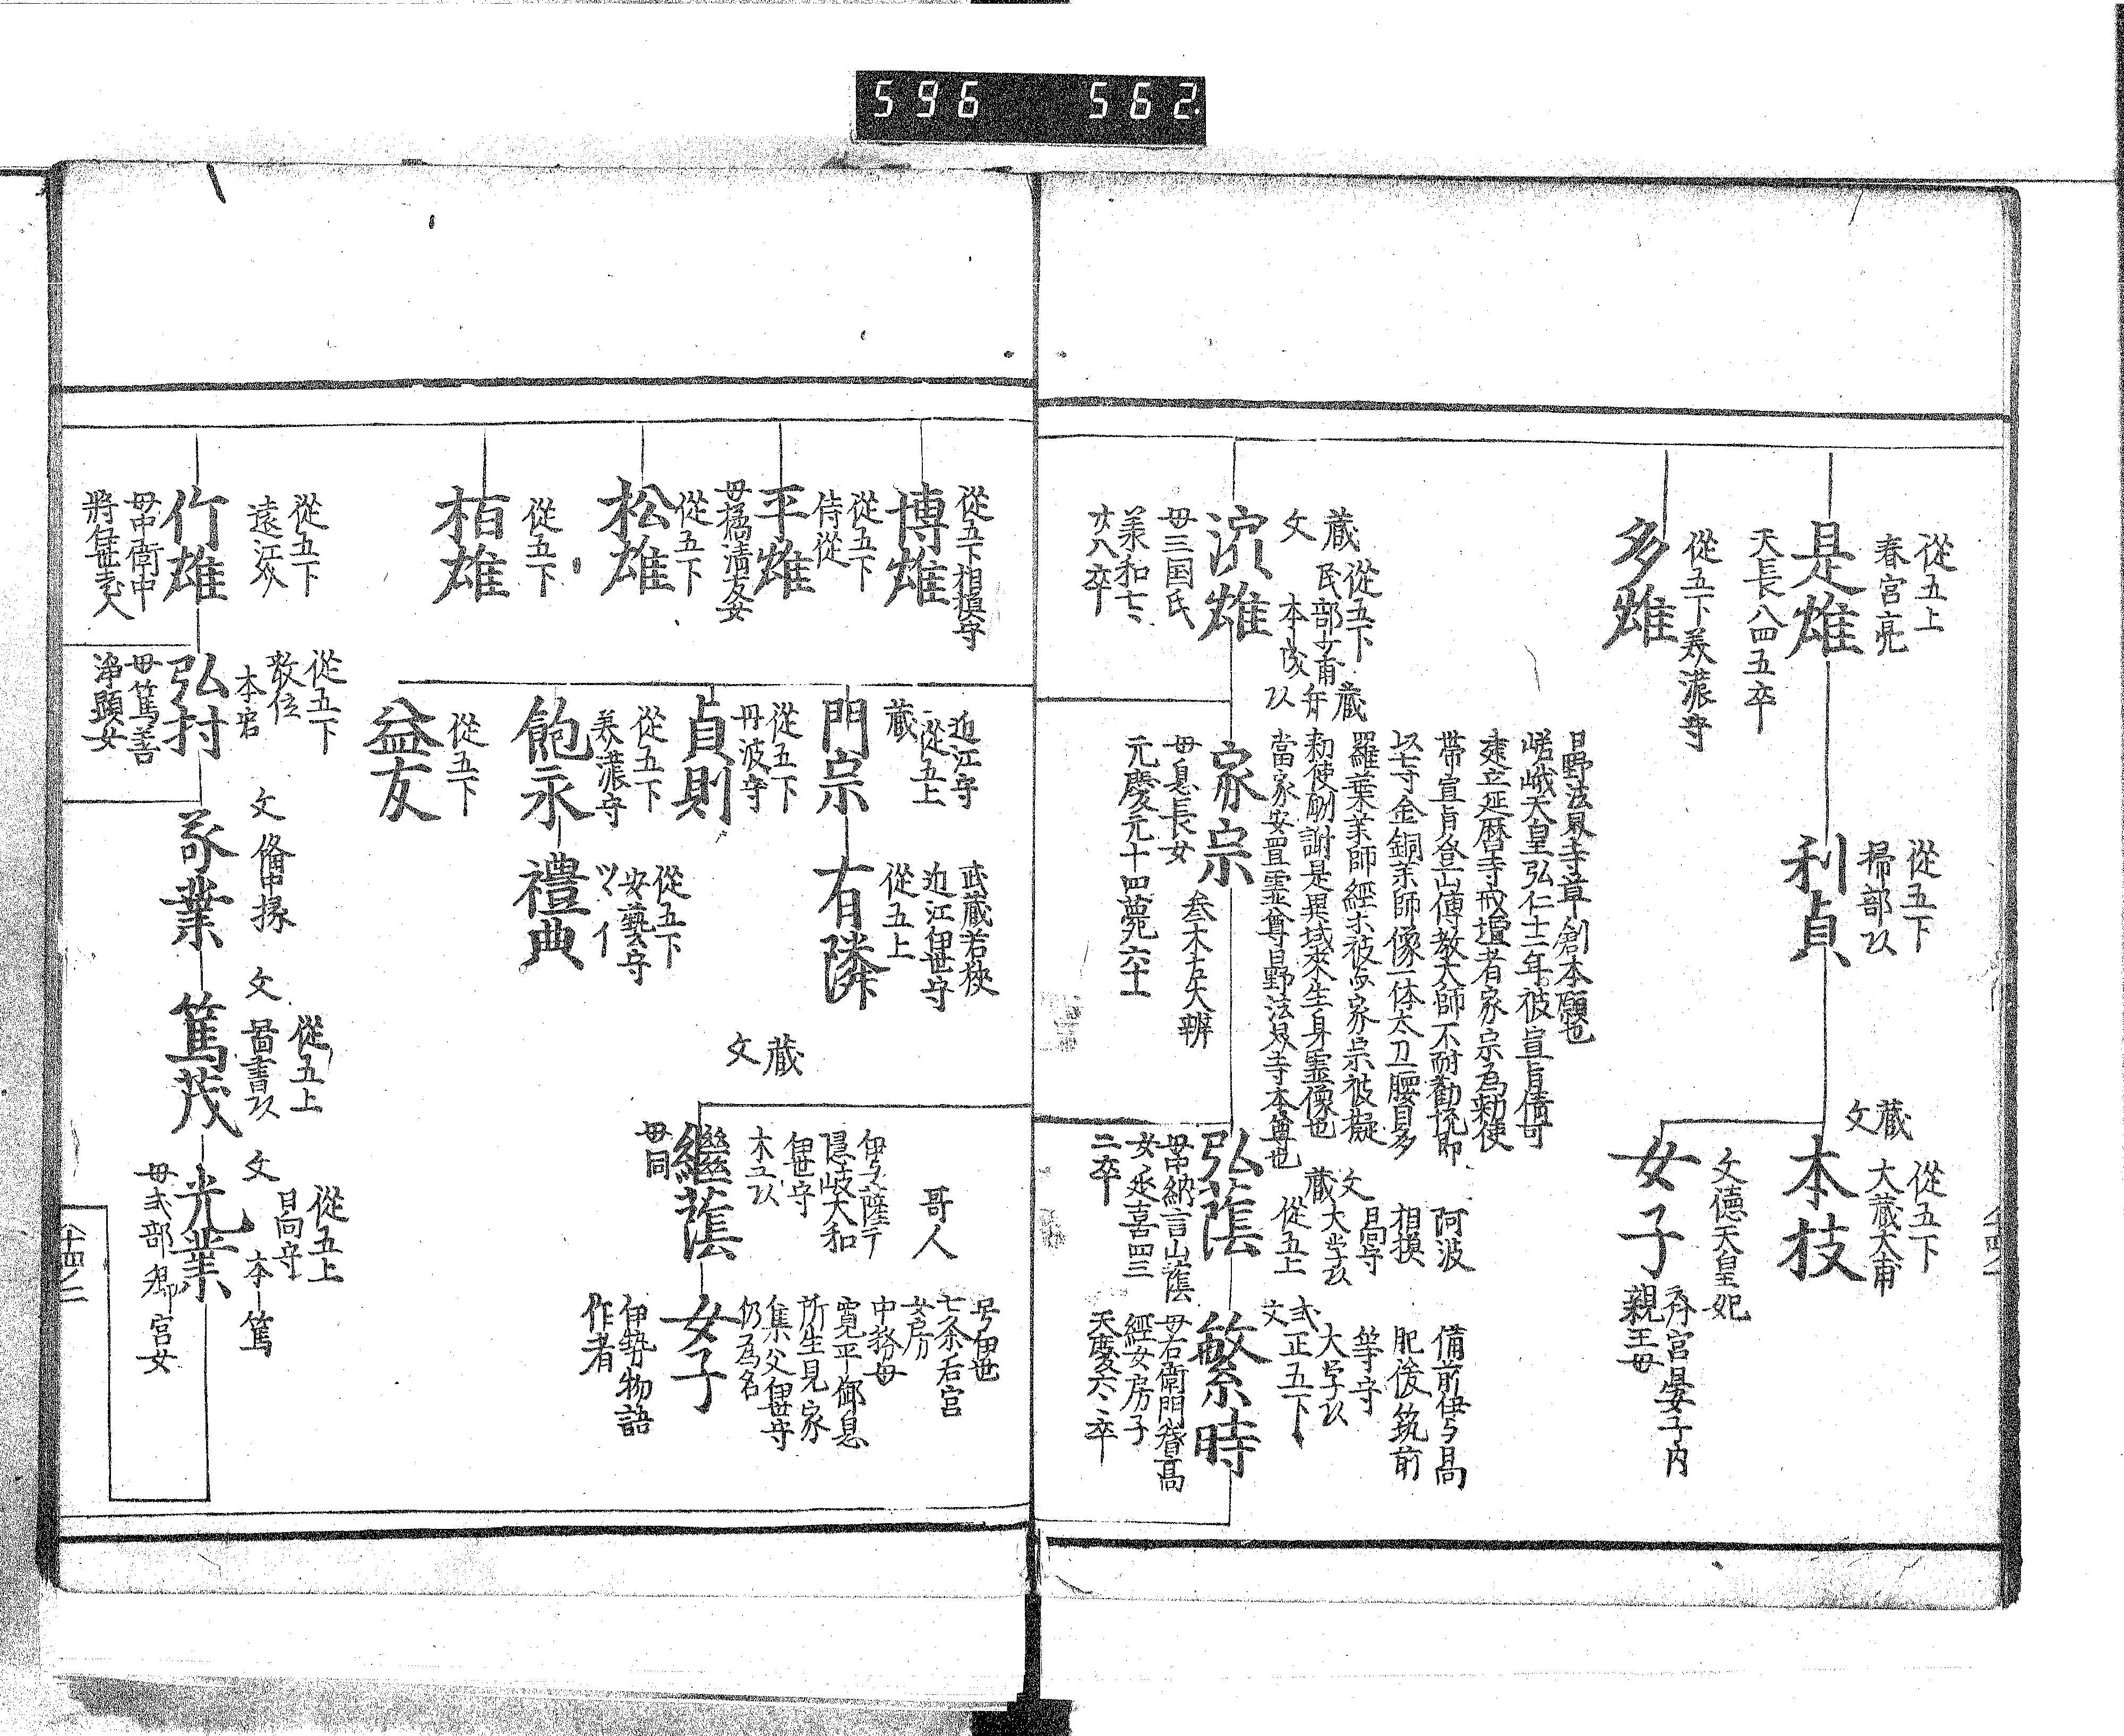 596 562.
從五上
春宮亮
是雄
天長八四五卒
從五下
掃部以
利貞
蔵
文
從五下
大蔵大甫
本技
文德天皇妃
女子
斉宮晏子内
親王母
從五下美濃守
多雄
日野法界寺草創本願也
嵯峨天皇弘仁十二年被宣旨倩可
建立延暦寺戒壇者家宗為勅使
帯宣旨登山傳教大師不耐勧悦即
以七寸金銅薬師像一体太刀一腰貝多
羅葉薬師經等被与家宗被擬
勅使酬謝是異域來生身霊像也
當家安置霊尊日野法界寺本尊也
蔵
文
從五下
民部少甫
濱雄
母三国氏
承和七
廿八卒
蔵
参木右大辨
家宗
母息長女
元慶元十四薨六十一
阿波
相摸
日向守
文
蔵
大学以
從五上
弘蔭
母中納言山蔭
女延喜四三
二卒
備前伊与日向
肥後筑前
等守
大学以
式正五下
文
繁時
母右衛門督高
經女房子
天慶六卒
從五下相摸守
博雄
從五下
侍從
平雄
母橘清友女
從五下
松雄
從五下
栢雄
近江守
從五上
蔵
門宗
武蔵若狹
近江伊世守
從五上
有隣
從五下
丹波守
貞則
從五下
美濃守
飽永
從五下
安藝守
禮典
從五下
益友
蔵
文
哥人
伊与薩广
隠岐大和
伊世守
木工以
繼蔭
母同
号伊世
七条后宮
女房
中務母
寛平御息
所生見家
集父伊世守
仍為名
女子
伊勢物語
作者
從五下
遠江介
竹雄
母中衛中
將
從五下
散位
本宕
弘村
母篤善
淨顕女
文
備中掾
家業
文
從五上
畐書以
篤茂
文
從五上
日向守
本篤
光業
母式部卿宮女